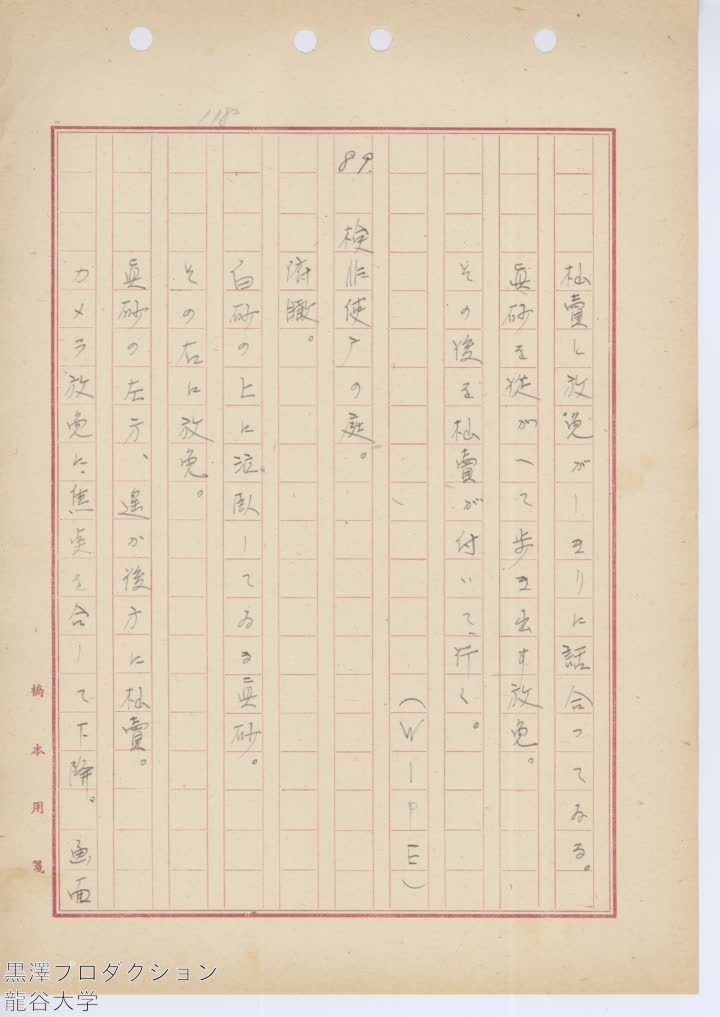 118
杣賣と放免がしきりに話合ってゐる。
眞砂を従がへて歩き出す放免。
その後を杣賣が付いて行く。
(WIPE)
89. 検非使庁の庭。
俯瞰。
白砂の上に泣臥してゐる眞砂。
その右に放免。
眞砂の左方、遥か後方に杣賣。
カメラ放免に焦点を合して下降。画面
橋本用箋
黒澤プロダクション
龍谷大学